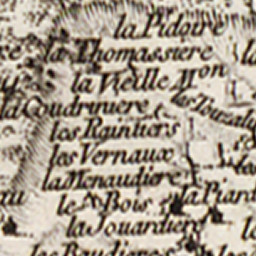 la Pidoire
la Thomassiere
la Vieille Mon
la Coudriniere
les Raintiers
les Vernaux
la Menaudiere
le Bois la Piard
la Jouardiere
les Baudieres